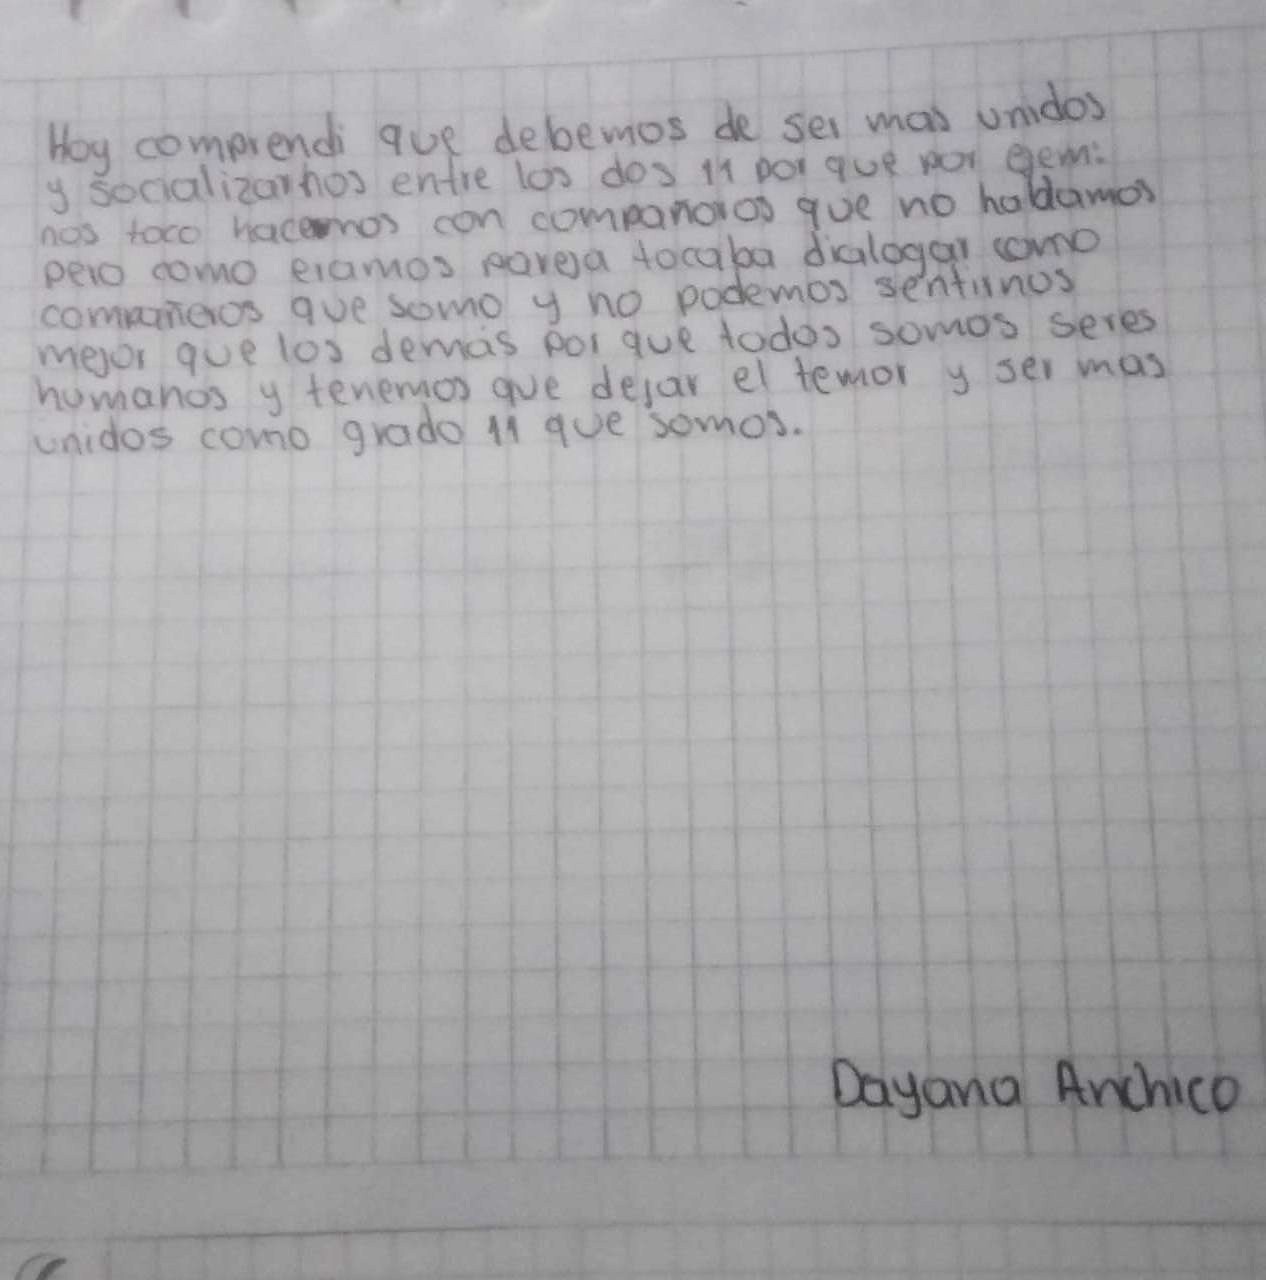 Hoy comprendi que debemos de ser mas unidos
y socializarnos entre los dos 11 por que por ejem:
nos toco hacernos con companoros que no habldamos
pero como eramos pareja tocaba dialogar como
compañeros que somo y no podemos sentirnos
mejor que los demás por que todos somos seres
humanos y tenemos que dejar el temor y ser mas
unidos como grado 11 que somos.
Dayana Anchico